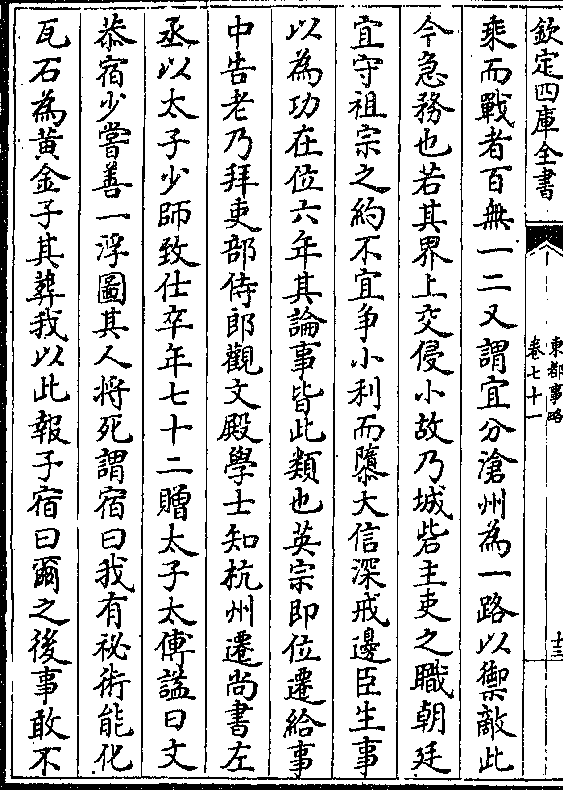 欽定四庫全書
東都事略
卷七十一
十三
乘而戰者百無一二又謂宜分滄州為一路以禦敵此
今急務也若其界上交侵小故乃城砦主吏之職朝廷
宜守祖宗之約不宜爭小利而隳大信深戒邊臣生事
以為功在位六年其論事皆此類也英宗即位遷給事
中告老乃拜吏部侍郎觀文殿學士知杭州遷尚書左
丞以太子少師致仕卒年七十二贈太子太傅諡曰文
恭宿少嘗善一浮圖其人將死謂宿曰我有祕術能化
瓦石為黃金子其葬我以此報子宿曰爾之後事敢不